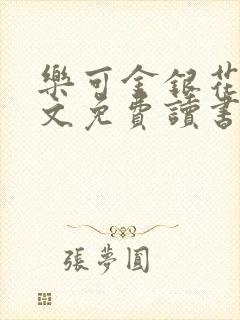 樂可金銀花
文免費讀書
張夢圓